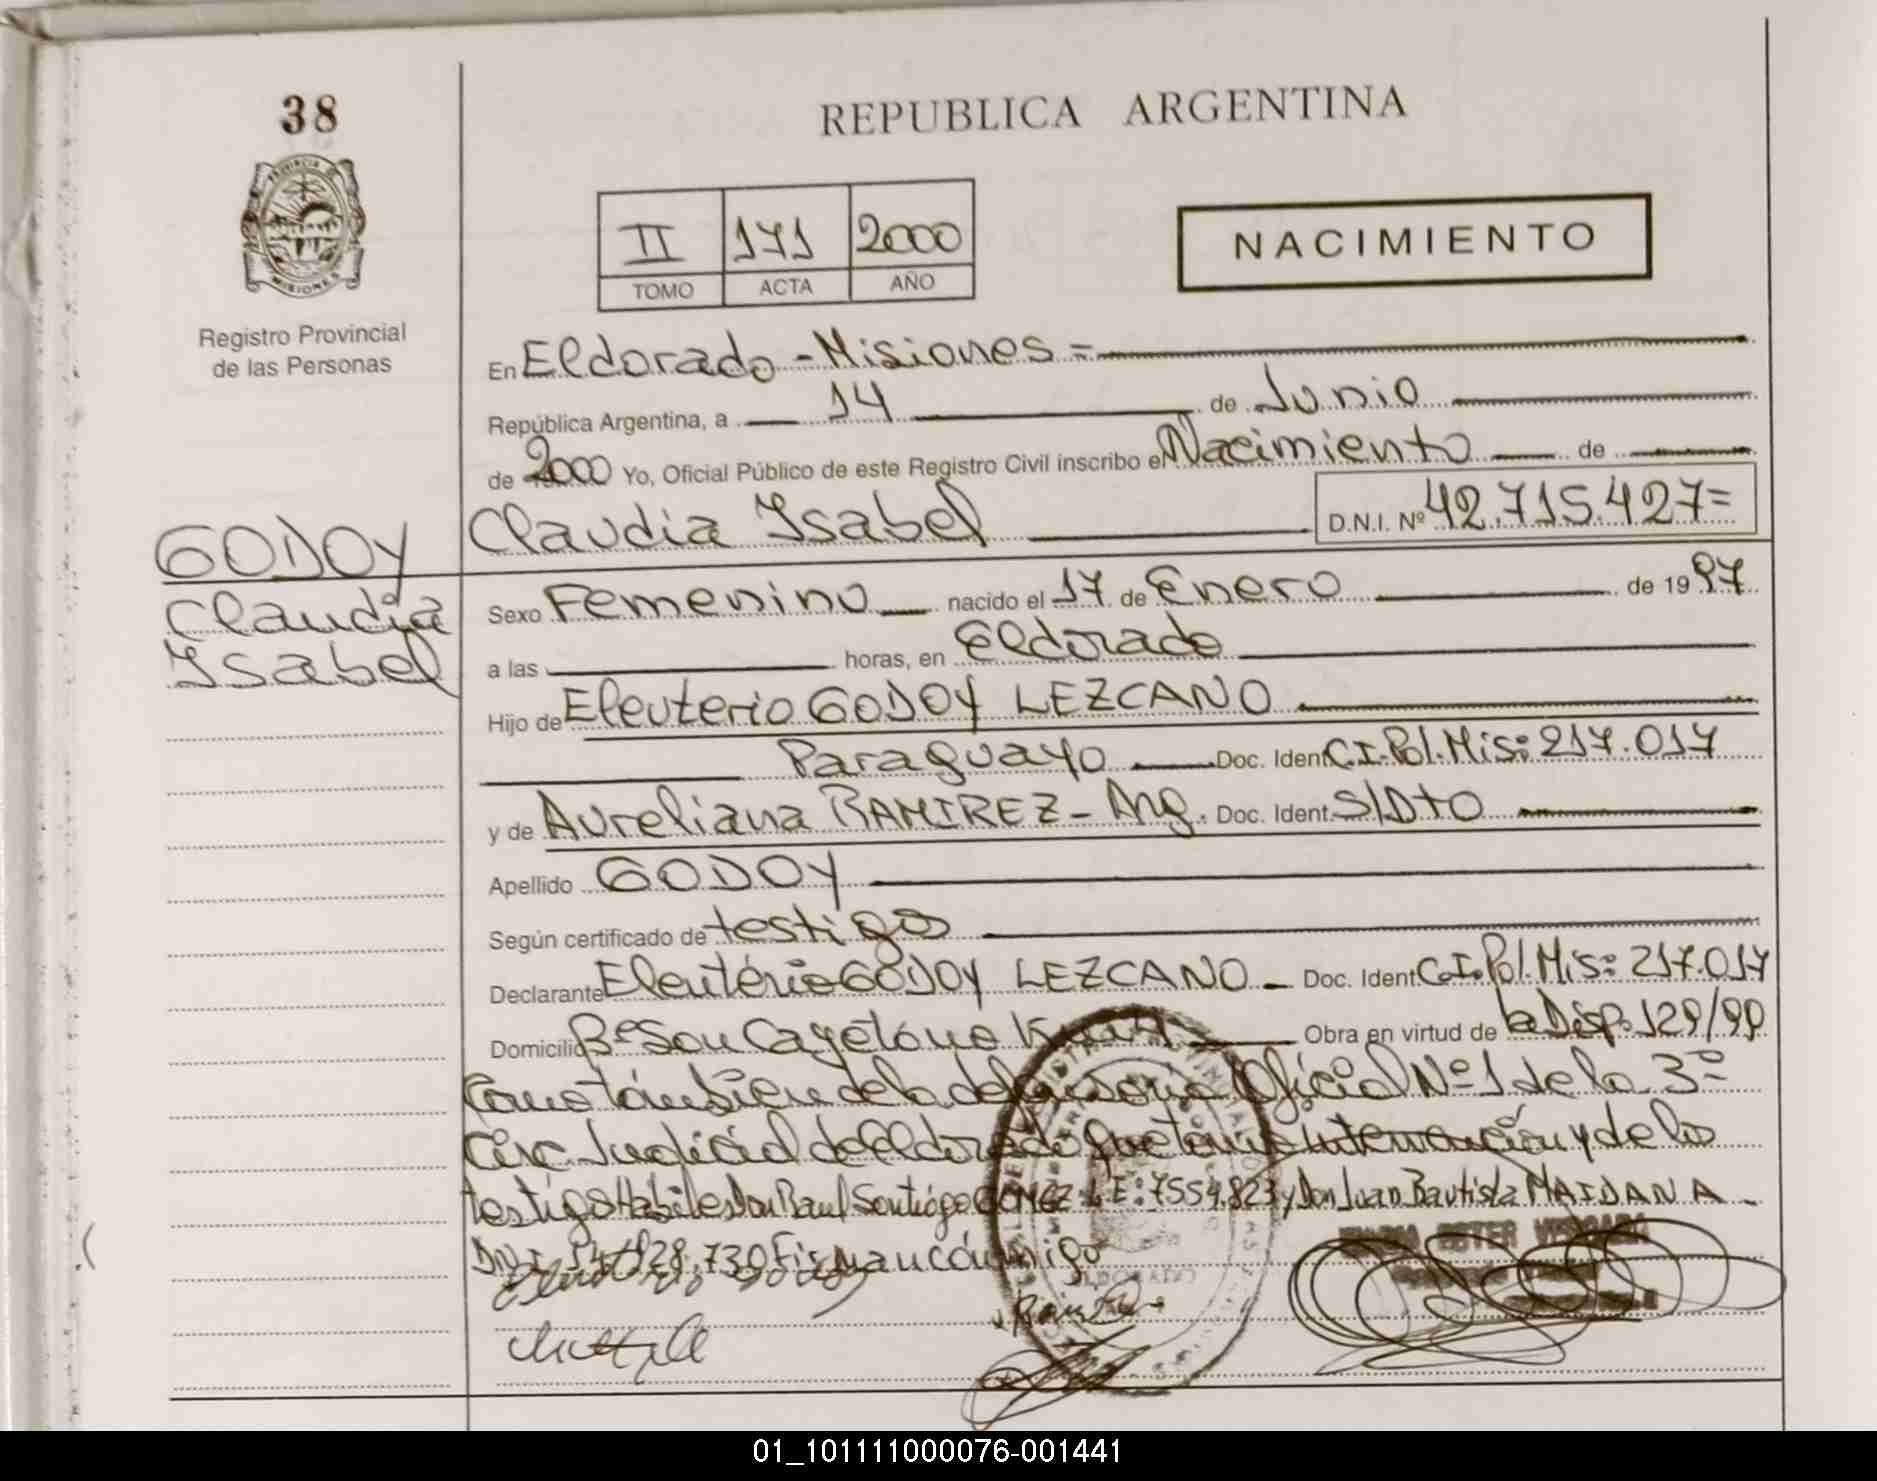 38
REPUBLICA ARGENTINA
PROVINCIA DE
MISIONES
II 171 2000
TOMO ACTA AÑO
NACIMIENTO
Registro Provincial
de las Personas
En Eldorado - Misiones =
República Argentina, a 14 de Junio
de 2000 Yo, Oficial Público de este Registro Civil inscribo el Nacimiento de
Claudia Isabel D.N.I. Nº 42.715.427=
GODOY
Claudia
Isabel
Sexo Femenino nacido el 17 de Enero de 1997
a las horas, en Eldorado
Hijo de Eleuterio GODOY LEZCANO
Paraguayo Doc. Ident. C.I. Pol. Mis: 217.017
y de Aureliana RAMIREZ - Arg. Doc. Ident. S/Dto
Apellido GODOY
Según certificado de testigos
Declarante Eleuterio GODOY LEZCANO Doc. Ident. C.I. Pol. Mis: 217.017
Domicilio Bº San Cayetano Obra en virtud de la Disp. 129/99
Como también de la defensoria Oficial Nº 1 de la 3º
Circ. Judicial de Eldorado que tomo intervención y de los
testigos Habiles Don Raul Santiago GOMEZ L.E: 7554.823 y Don Juan Bautista MAIDANA -
DNI 730 Firman conmigo
ELDORADO
01_101111000076-001441